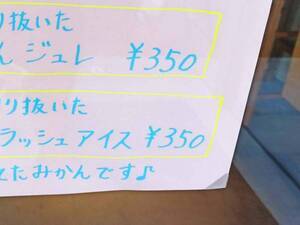 り抜いた
んジュレ ¥350
り抜いた
ラッシュアイス ¥350
えたみかんです♪